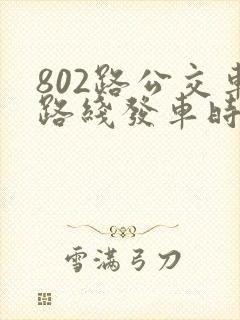 802路公交車
路綫發車時
雪滿弓刀